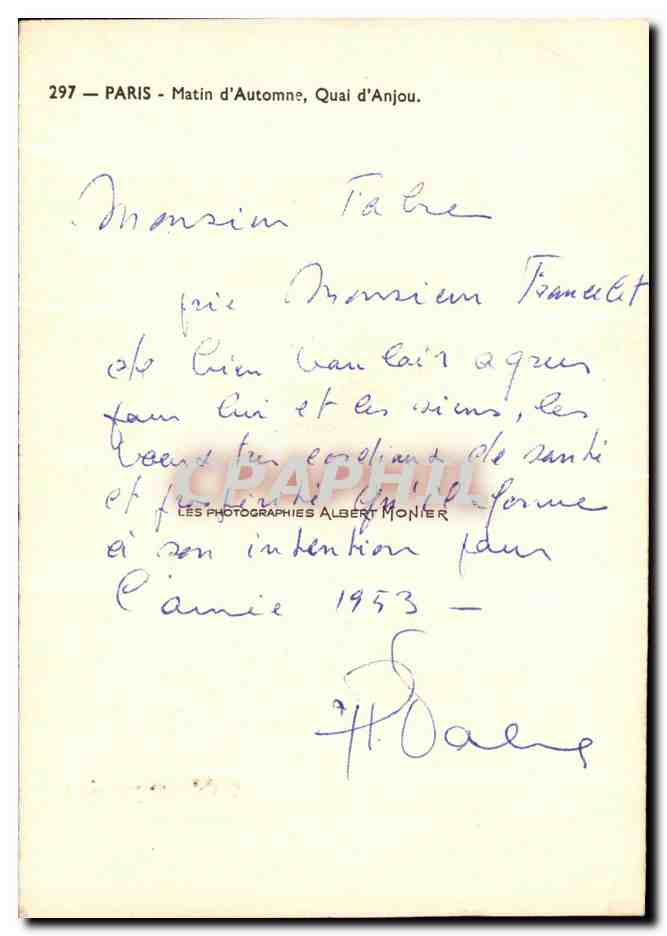 297 — PARIS - Matin d'Automne, Quai d'Anjou.
Monsieur Fabre
prie Monsieur Francelet
de bien vouloir agréer
pour lui et les siens, les
voeux très cordiaux de santé
et prospérité qu'il forme
CPAPHIL
LES PHOTOGRAPHIES ALBERT MONIER
à son intention pour
l'année 1953 —
H. Fabre